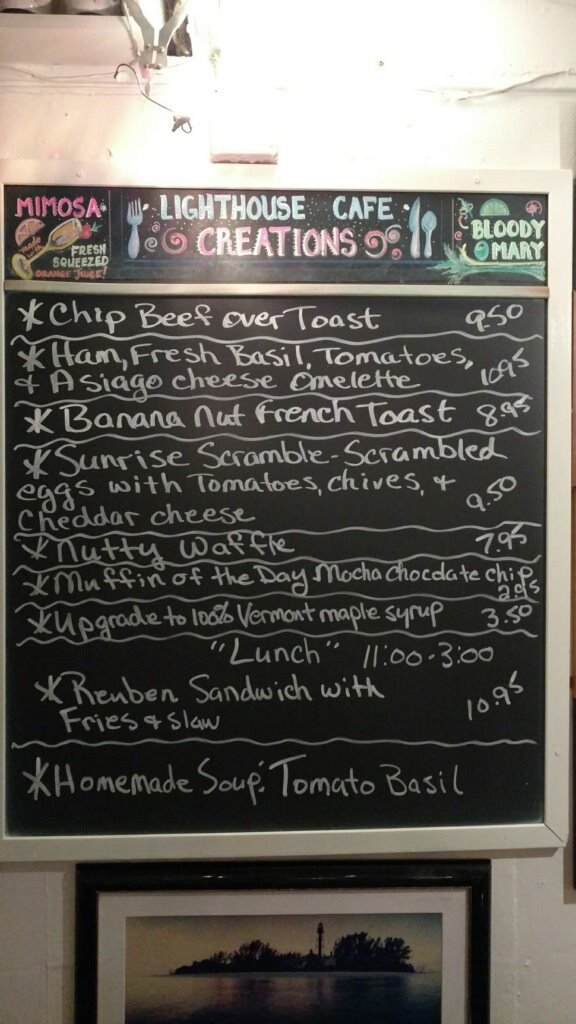 MIMOSA
made with
FRESH
SQUEEZED
ORANGE JUICE!
LIGHTHOUSE CAFE
CREATIONS
BLOODY
MARY
* Chip Beef over Toast 9.50
* Ham, Fresh Basil, Tomatoes,
& Asiago cheese Omelette 10.95
* Banana Nut French Toast 8.95
* Sunrise Scramble - Scrambled
eggs with Tomatoes, chives, &
Cheddar cheese 9.50
* Nutty Waffle 7.95
* Muffin of the Day Mocha Chocolate chip
2.95
* Upgrade to 100% Vermont maple syrup 3.50
"Lunch" 11:00-3:00
* Reuben Sandwich with
Fries & Slaw 10.95
* Homemade Soup: Tomato Basil